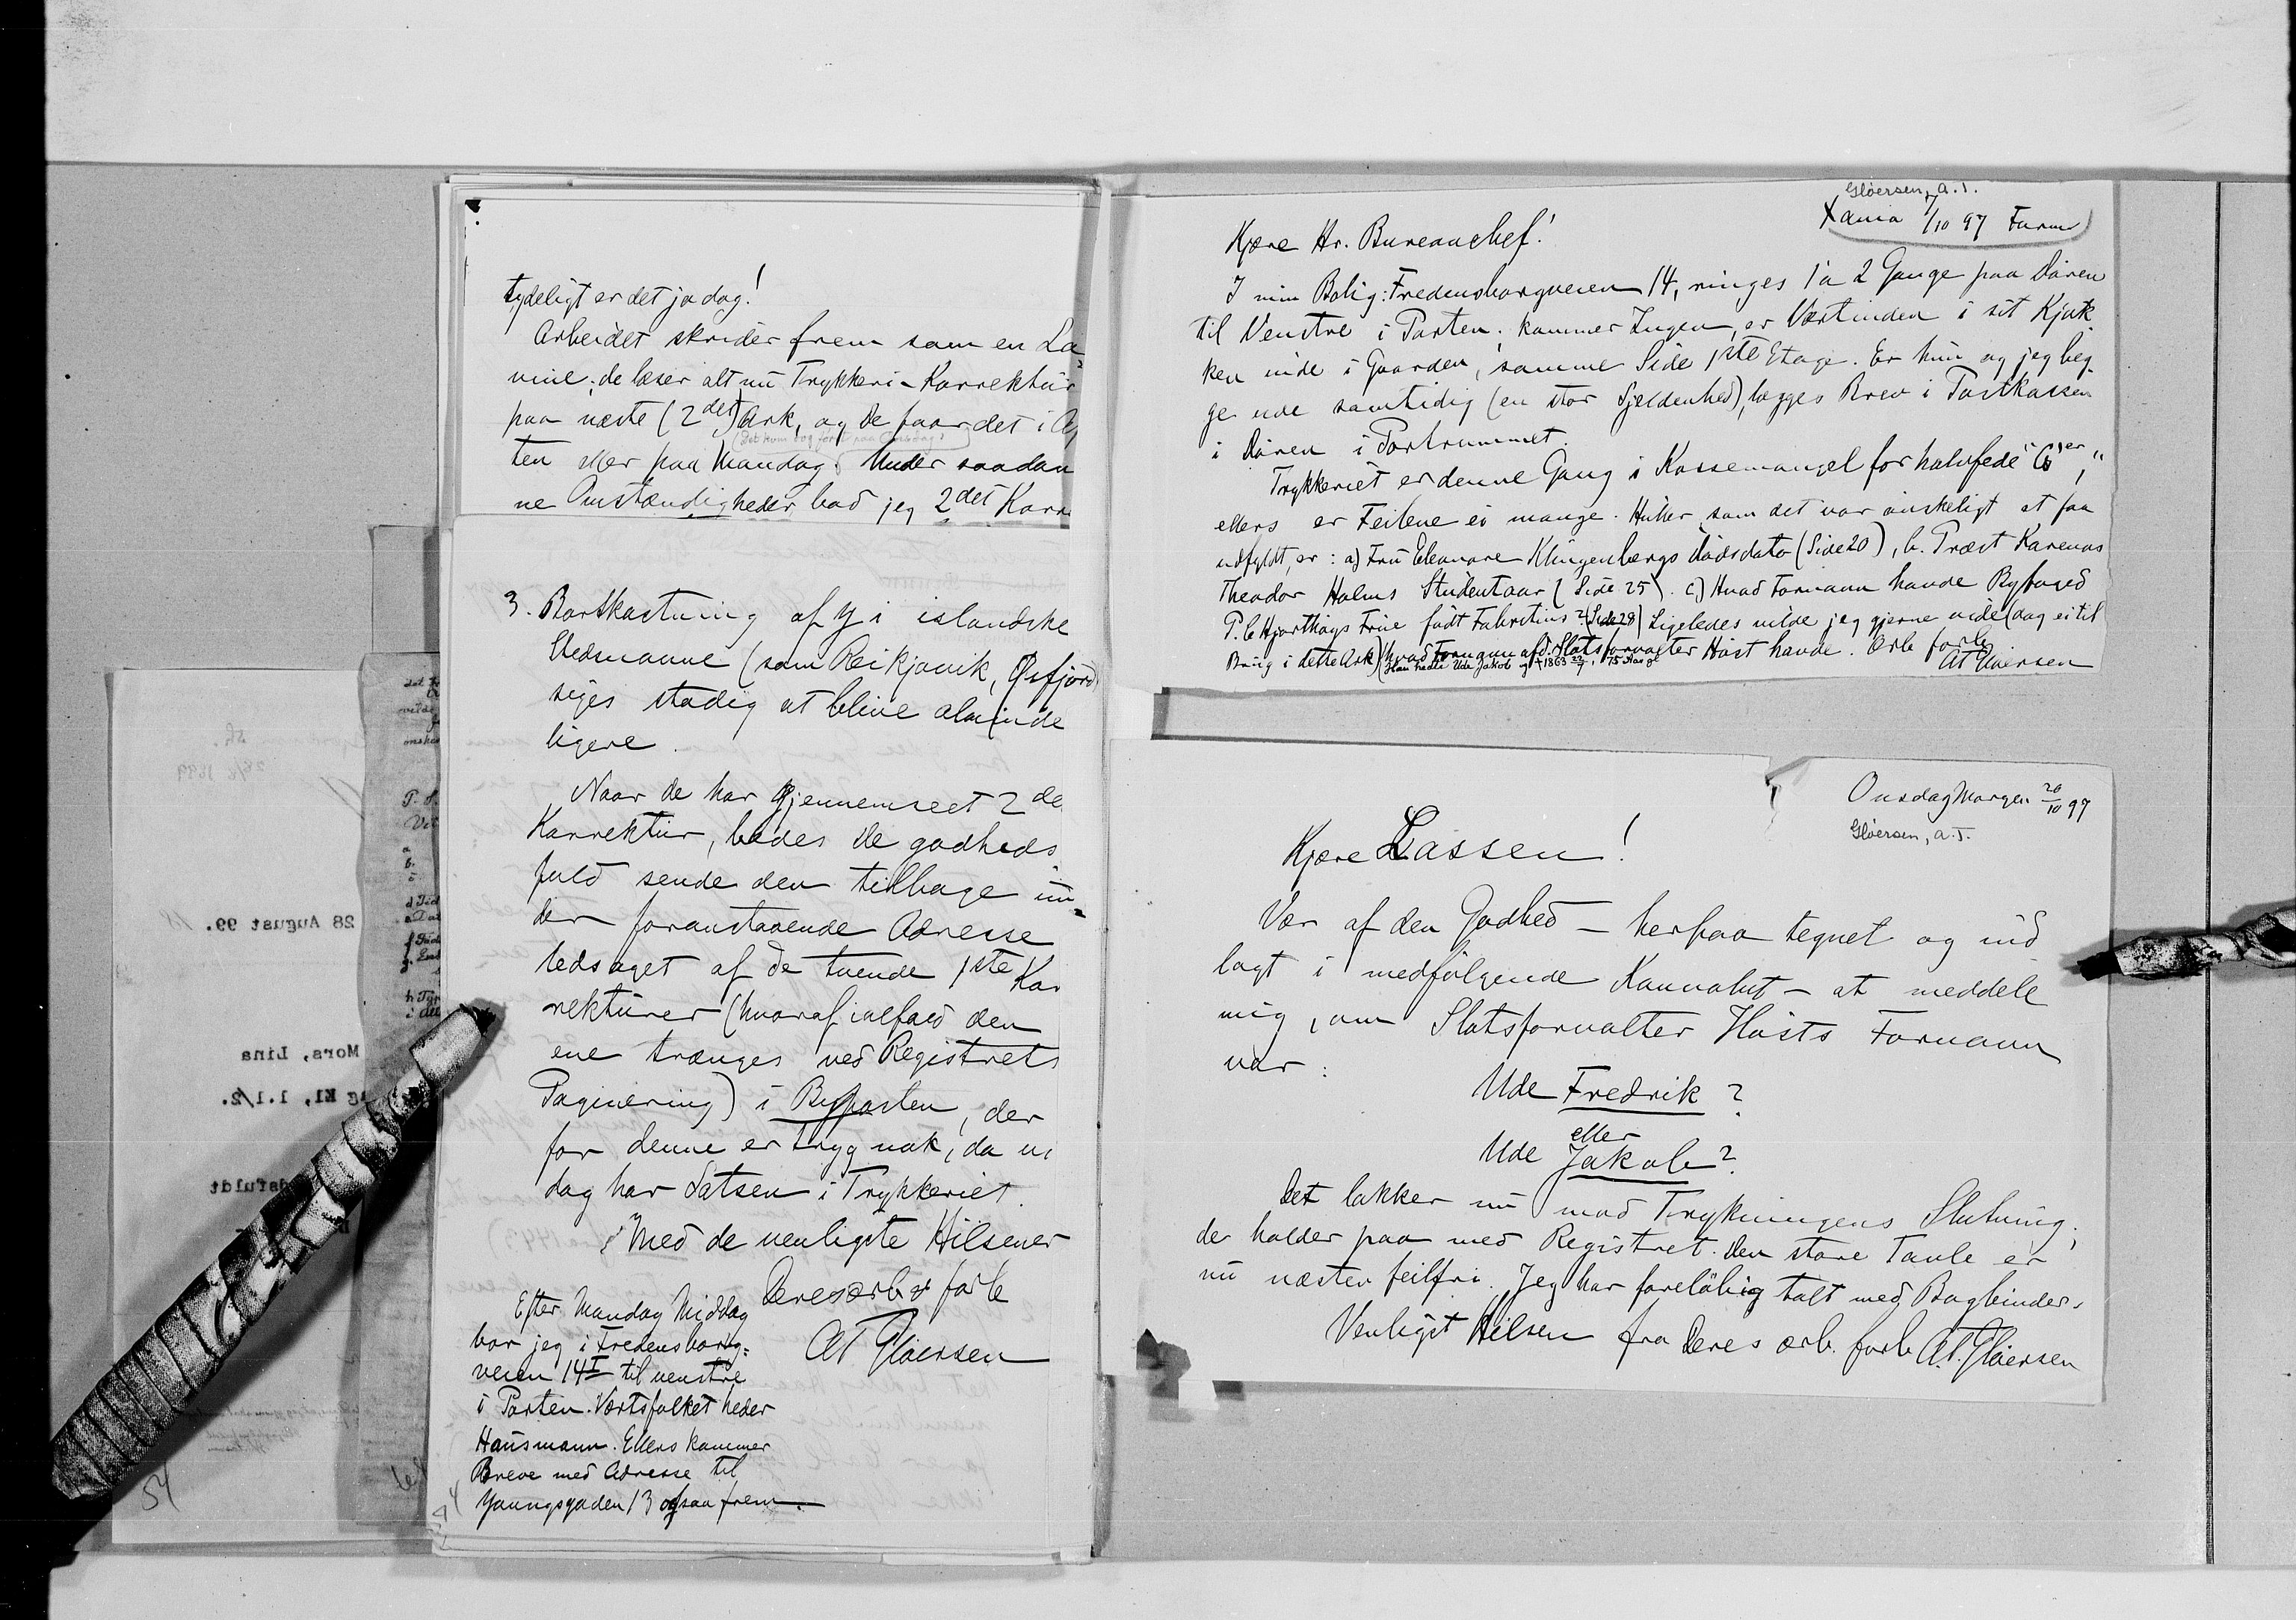 tydeligt er det jo dog!
Arbeidet skrider frem som en La-
vine; de læser alt nu Trykkeri-Korrektur
paa næste (2det) Ark, og De faar det i Af
(Det kom dog først paa Onsdag)
ten eller paa Mandag. Under saadan
ne Omstændigheder bad jeg 2det Korr
3. Bortkastning af y i islandske
Stedsnavne (som Reikjavik, Øfjord)
siges stadig at blive alminde
ligere.
Naar de har gjennemseet 2de
Korrektur, bedes De godheds
fuld sende den tilbage un-
der foranstaaende Adresse
ledsaget af de tvende 1ste Kor
rekturer (hvoraf ialfald den
ene trænges ved Registrets
Paginering) i Byposten, der
for denne er tryg nok, da vi
dog har Satsen i Trykkeriet.
Med de venligste Hilsener
Deres ærb. forb
AT Gløersen
Efter Mandag Middag
bor jeg i Fredensborg-
veien 14 I til venstre
i Porten. Vertsfolket heder
Hausmann. Ellers kommer
Breve med Adresse til
Youngsgaden 13 ogsaa frem.
54
28 August 99.
Mors, Lina
Kl. 1.1/2.
Gløersen, A.T.
Xania 7/10 97 Form
Kjære Hr. Bureauchef!
I min Bolig: Fredensborgveien 14, ringes 1 a 2 Gange paa Døren
til Venstre i Porten; kommer Ingen, er Vertinden i sit Kjøk
ken inde i Gaarden, samme Side 1ste Etage. Er hun og jeg beg-
ge ude samtidig (en stor Sjeldenhed), lægges Brev i Postkassen
i Døren i Portrummet.
Trykkeriet er denne Gang i Kassemangel for halvfede "6"er,"
ellers er Feilene ei mange. Huller, som det var ønskeligt at faa
udfyldt, er: a) Fru Eleonore Klingenbergs Dødsdato (Side 20), b. Præst Karenus
Theodor Holms Studentaar (Side 25). c) Hvad Fornavn havde Byfoged
P. C. Hjorthøys Frue født Fabritius? (Side 28) Ligeledes vilde jeg gjerne vide (dog ei til
Brug i dette Ark) hvad Fornavn afd. Slotsforvalter Høst havde. Ærb forb
(Han hedte Ude Jakob og + 1863 23/7, 75 Aar gl
AT Gløersen
Onsdag Morgen 20/10 97
Gløersen, A.T.
Kjære Lassen!
Vær af den Godhed – herpaa tegnet og ind
lagt i medfølgende Konvolut – at meddele
mig, om Slotsforvalter Høsts Fornavn
var:
Ude Fredrik?
eller
Ude Jakob?
Det lakker nu mod Trykningens Slutning;
de holder paa med Registret. Den store Tavle er
nu næsten feilfri. Jeg har foreløbig talt med Bogbinder.
Venligst Hilsen fra Deres ærb. forb A.T. Gløersen